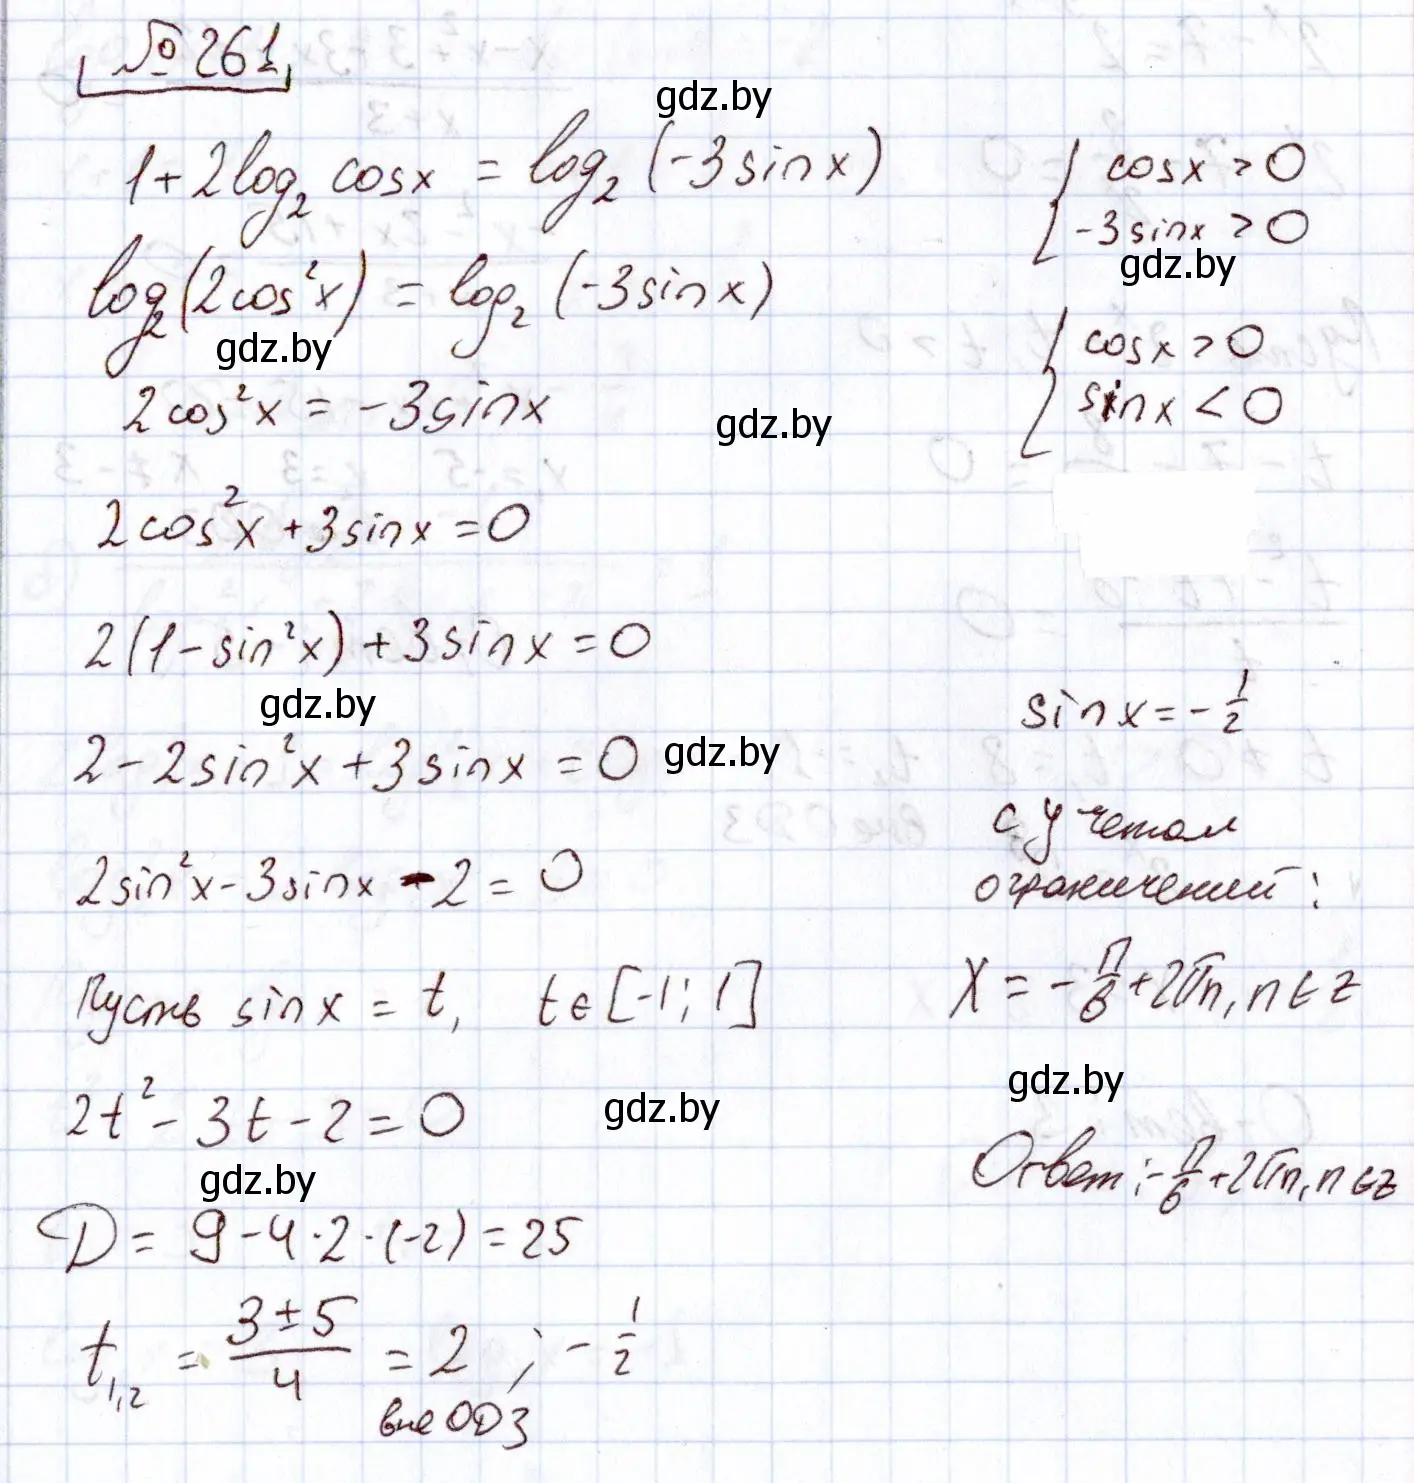 № 261
gdz.by
1+2log₂ cosx = log₂(-3sinx)
{ cosx > 0
-3sinx > 0
gdz.by
log₂(2cos²x) = log₂(-3sinx)
gdz.by
{ cosx > 0
sinx < 0
2cos²x = -3sinx
gdz.by
2cos²x + 3sinx = 0
2(1-sin²x) + 3sinx = 0
gdz.by
sinx = -1/2
2-2sin²x + 3sinx = 0
gdz.by
с учетом
ограничений:
2sin²x - 3sinx - 2 = 0
Пусть sinx = t, t∈[-1; 1]
X = -π/6 + 2πn, n∈z
gdz.by
2t² - 3t - 2 = 0
gdz.by
gdz.by
Ответ: -π/6 + 2πn, n∈z
D = 9 - 4·2·(-2) = 25
t₁,₂ = (3±5)/4 = 2 ; -1/2
вне ОДЗ